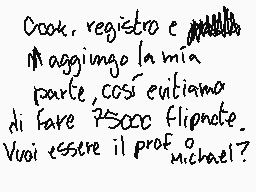 Ook, registro e
aggiungo la mia
parte, così evitiamo
di fare 75000 flipnote.
Vuoi essere il prof o
Michael?